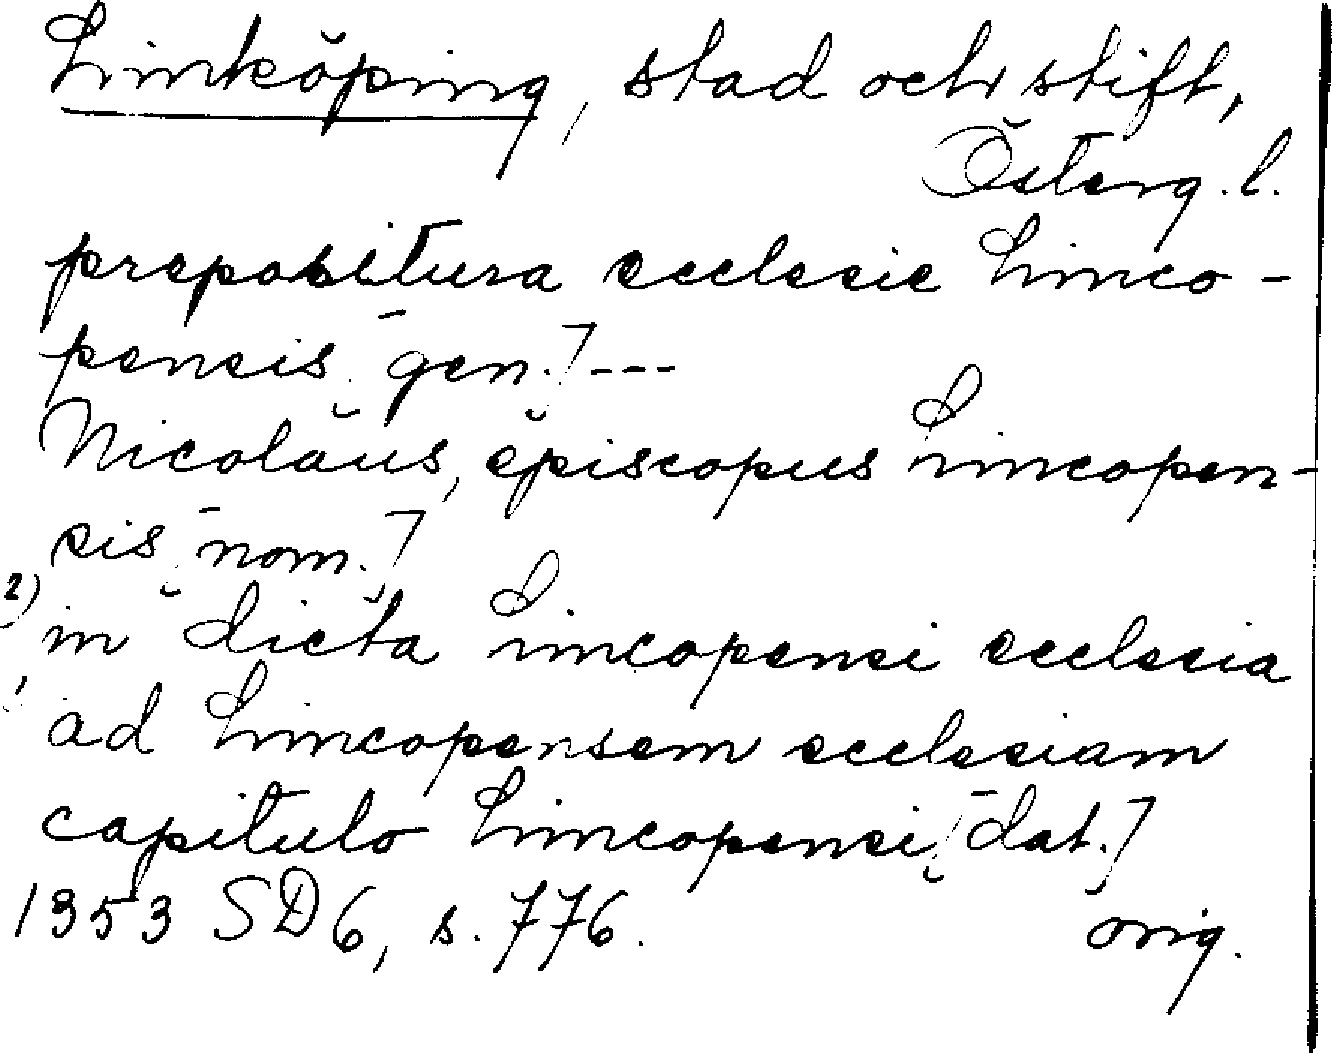 Linköping, stad och stift,
Österg. l.
prepositura ecclesie Linco-
pensis [gen.] ---
Nicolaus, episcopus Lincopen-
sis [nom.]
2) in dicta Lincopensi ecclesia
ad Lincopensem ecclesiam
capitulo Lincopensi [dat.]
1353 SD 6, s. 776. orig.